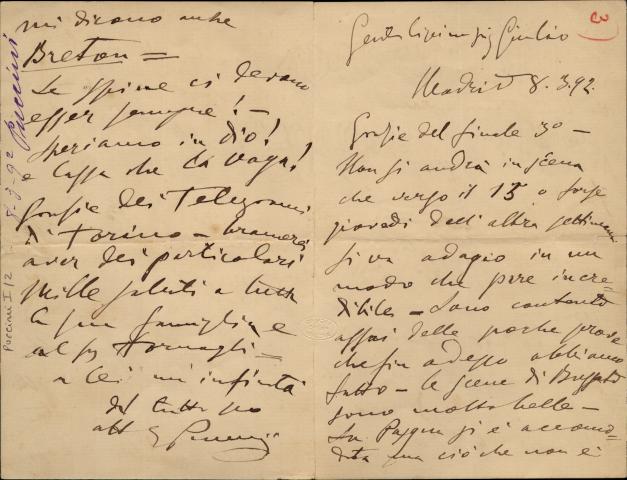 3
Gentilissimo sig Giulio
Madrid 8.3.92.
Grazie del finale 3º –
Non si andrà in scena
che verso il 15 o forse
giovedì dell'altra settimana
si va adagio in un
modo che pare incre=
dibile – Sono contento
assai delle poche prove
che fin adesso abbiamo
fatto – le scene di Bussato
sono molto belle –
La Pasqua si è accomo=
data ma ciò che non è
mi dicono anche
Breton =
Le spine ci devono
esser sempre! –
Speriamo in Dio!
e lassa che la vaga!
Grazie dei Telegrammi
di Torino – bramerei
aver dei particolari
Mille saluti a tutta
la sua famiglia e
al sig Tornaghi –
a lei un'infinità
del tutto suo
aff G Puccini
Puccini I/2 8-3-92 Puccini